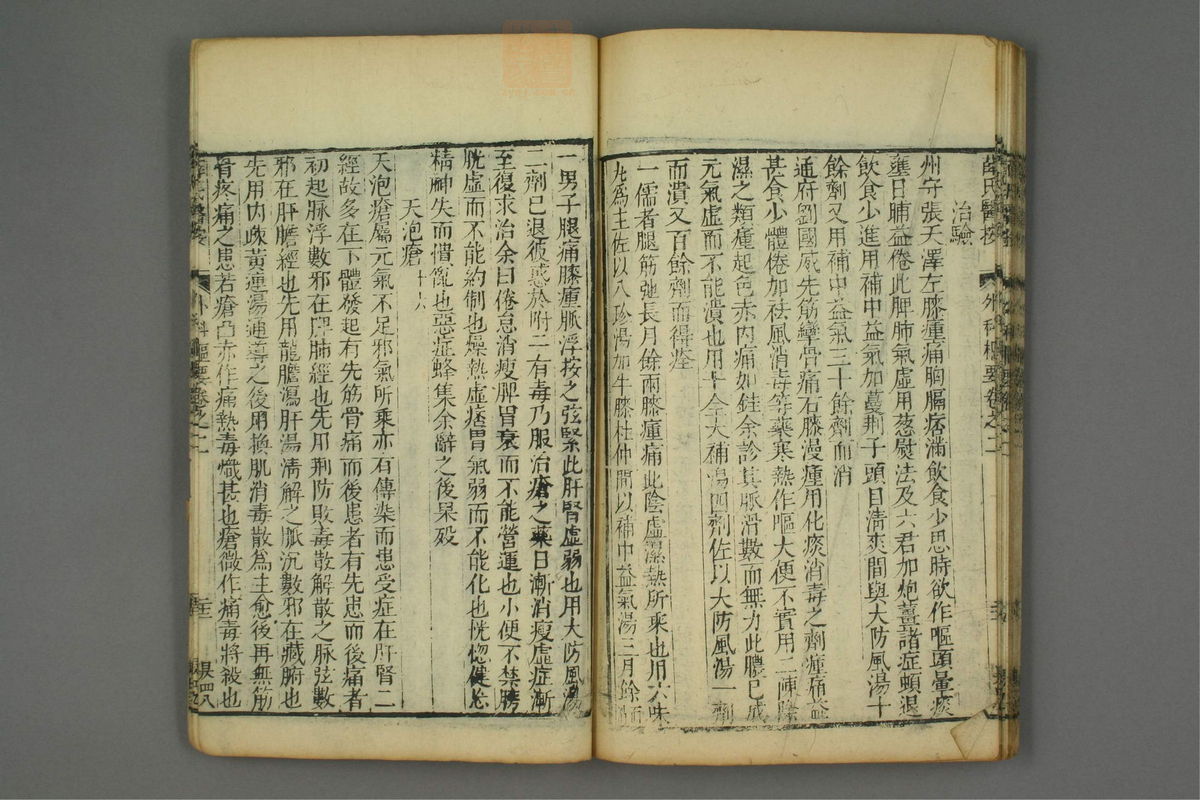 薛氏醫按 外科樞要卷之二
治驗
州守張天澤左膝腫痛胸膈痞滿飲食少思時欲作嘔頭暈痰
壅日晡益倦此脾肺氣虛用葱熨法及六君加炮薑諸症頓退
飲食少進用補中益氣加蔓荆子頭目清爽間與大防風湯十
餘劑又用補中益氣三十餘劑而消
通府劉國威先筋攣骨痛右膝漫腫用化痰消毒之劑腫痛益
甚食少體倦加祛風消毒等藥寒熱作嘔大便不實用二陳除
濕之類腫起色赤內痛如錐余診其脈滑數而無力此膿已成
元氣虛而不能潰也用十全大補湯四劑佐以大防風湯一劑
而潰又百餘劑而得痊
一儒者腿筋弛長月餘兩膝腫痛此陰虛濕熱所乘也用六味
丸為主佐以八珍湯加牛膝杜仲間以補中益氣湯三月餘而
一男子腿痛膝腫脈浮按之弦緊此肝腎虛弱也用大防風湯
二劑已退彼惑於附子有毒乃服治瘡之藥日漸消瘦虛症漸
至復求治余曰倦怠消瘦脾胃衰而不能營運也小便不禁膀
胱虛而不能約制也燥熱虛痞胃氣弱而不能化也恍惚健忘
精神失而憒亂也惡症蜂集余辭之後果歿
天泡瘡 十六
天泡瘡屬元氣不足邪氣所乘亦有傳染而患受症在肝腎二
經故多在下體發起有先筋骨痛而後患者有先患而後痛者
初起脉浮數邪在脾肺經也先用荆防敗毒散解散之脉弦數
邪在肝膽經也先用龍膽瀉肝湯清解之脈沉數邪在藏腑也
先用內疎黃連湯通導之後用換肌消毒散為主愈後再無筋
骨疼痛之患若瘡凸赤作痛熱毒熾甚也瘡微作痛毒將殺也
外科樞要卷之二